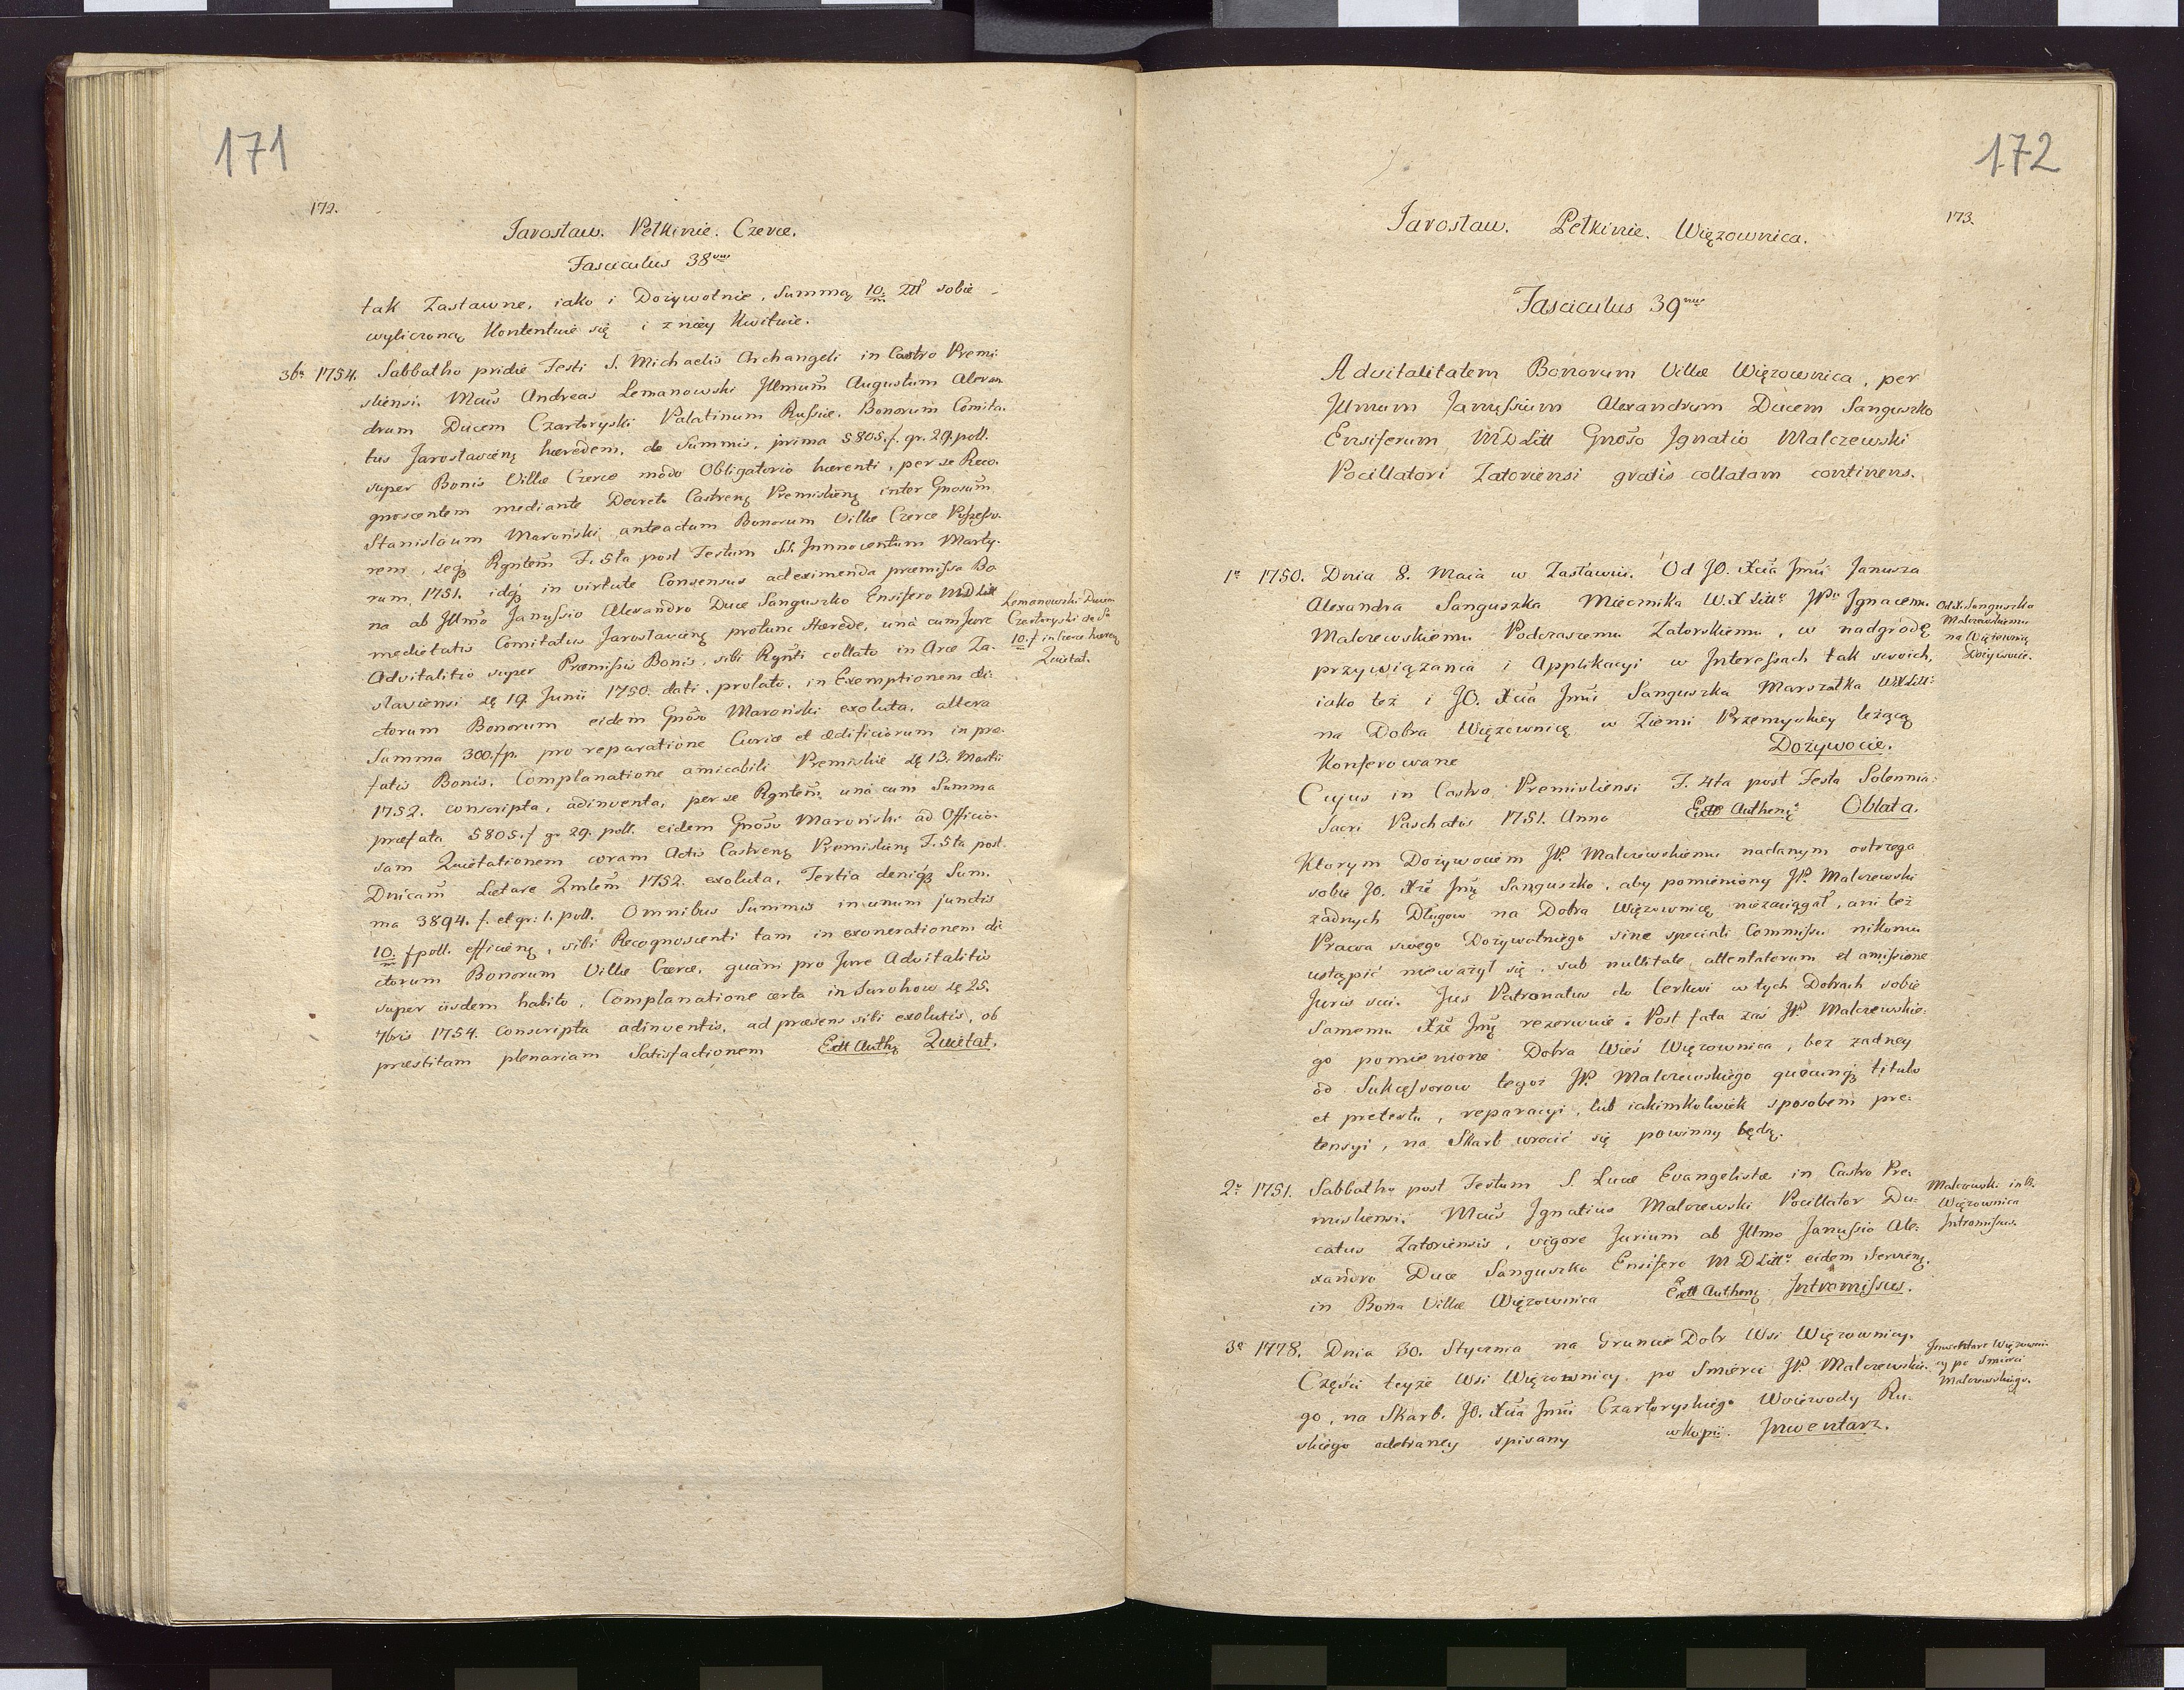 171
172.
Jarosław. Pełkinie. Czerce.
Fasciculus 38vus
tak Zastawne, iako i Dożywotnie, Summą 10/m Złł sobie
wyliczoną Kontentuie się i z niey Kwituie.
36ta 1754. Sabbatho pridie Festi S. Michaelis Archangeli in Castro Premi-
sliensi. Mcus Andreas Lemanowski Jllmum Augustum Alexan
drum Ducem Czartoryski Palatinum Russiæ, Bonorum Comita-
tus Jaroslavien hæredem, de Summis, prima 5805. f. gr. 29. poll.
super Bonis Villæ Czerce modo Obligatorio hærenti, per se Reco-
gnoscentem mediante Decreto Castren Premislien inter Gnosum
Stanislaum Maroński anteactum Bonorum Villæ Czerce Possesso-
rem, seq Rgntem F. 5ta post Festum SS. Jnnocentum Marty-
rum, 1751. idq in virtute Consensus ad eximenda præmissa Bo
na ab Jllmo Janussio Alexandro Duce Sanguszko Ensifero MDLitt
medietatis Comitatus Jaroslavien protunc Hærede, unà cum Jure
Advitalitio super Præmissis Bonis, sibi Rgnti collato in Arce Za-
slaviensi de 19. Junii 1750. dati, prolato, in Exemptionem di-
ctorum Bonorum eidem Gnoso Maroński exoluta, altera
Summa 300. fp. pro reparatione Curiæ et ædificiorum in præ-
fatis Bonis, Complanatione amicabili Premisliæ de 13. Martii
1752. conscripta, adinventa, per se Rgntem, unà cum Summa
præfata 5805. f gr 29. poll. eidem Gnoso Maroński ad Officio-
sam Quietationem coram Actis Castren Premislien F. 5ta post
Dnicam Lætare Qmlem 1752. exoluta, Tertia deniq Sum-
ma 3894. f. et gr: 1. poll. Omnibus Summis in unum junctis
10/m f poll. efficien, sibi Recognoscenti tam in exonerationem di-
ctorum Bonorum Villæ Czerce, quàm pro Jure Advitalitio
super iisdem habito, Complanatione certa in Surohow de 25.
7bris 1754. conscripta adinventis, ad præsens sibi exolutis, ob
præstitam plenariam Satisfactionem Extt Auth Quietat.
Lemanowski Ducem
Czartoryski de Sa
10/m f in Czerce hæren
Quietat.
172
173.
Jarosław. Pełkinie. Więzownica.
Fasciculus 39nus
Advitalitatem Bonorum Villæ Więzownica, per
Jllmum Janussium Alexandrum Ducem Sanguszko
Ensiferum MDLitt Gnoso Jgnatio Malczewski
Pocillatori Zatoriensi gratis collatam continens.
1a 1750. Dnia 8. Maia w Zasławiu. Od JO. Xcia Jmci Janusza
Alexandra Sanguszka Miecznika W.X Litto JPu Jgnacemu
Malczewskiemu Podczaszemu Zatorskiemu, w nadgrodę
przywiązania i Applikacyi w Jnteressach tak swoich,
iako też i JO. Xcia Jmci Sanguszka Marszałka WXLitt:
na Dobra Więzownicę w Ziemi Przemyskiey leżącą
Konferowane Dożywocie.
Cujus in Castro Premisliensi F. 4ta post Festa Solennia
Sacri Paschatis 1751. Anno Extt Authen Oblata.
Ktorym Dożywociem JP. Malczewskiemu nadanym ostrzega
sobie JO. Xże Jmć Sanguszko, aby pomieniony JP. Malczewski
żadnych Długow na Dobra Więzownicę niezaciągał, ani też
Prawa swego Dożywotniego sine speciali Commissu nikomu
ustąpić nieważył się, sub nullitate attentatorum et amissione
Juris sui. Jus Patronatus do Cerkwi w tych Dobrach sobie
Samemu Xże Jmć rezerwuie. Post fata zaś JP. Malczewskie-
go pomienione Dobra Wieś Więzownica, bez zadney
od Sukcessorow tegoż JP. Malczewskiego quocunq titulo
et pretextu, reparacyi, lub iakimkolwiek sposobem pre-
tensyi, na Skarb wrocić się powinny będą.
Od X. Sanguszko
Malczewskiemu
na Więzownicę
Dożywocie.
2a 1751. Sabbatho post Festum S. Lucæ Evangelistæ in Castro Pre-
misliensi. Mcus Jgnatius Malczewski Pocillator Du-
catus Zatoriensis, vigore Jurium ab Jllmo Janussio Ale-
xandro Duce Sanguszko Ensifero MDLitt: eidem Servien.
in Bona Villæ Więzownica Extt Authen Jntromissus.
Malczewski in B.
Więzownica
Jntromissus.
3a 1778. Dnia 30. Stycznia na Gruncie Dobr Wsi Więzownicy.
Części teyże Wsi Więzownicy, po Smierci JP. Malczewskie-
go, na Skarb. JO. Xcia Jmci Czartoryskiego Woiewody Ru-
skiego odebraney spisany w kopii Jnwentarz.
Jnwentarz Więzowni-
cy po Smierci
Malczewskiego.